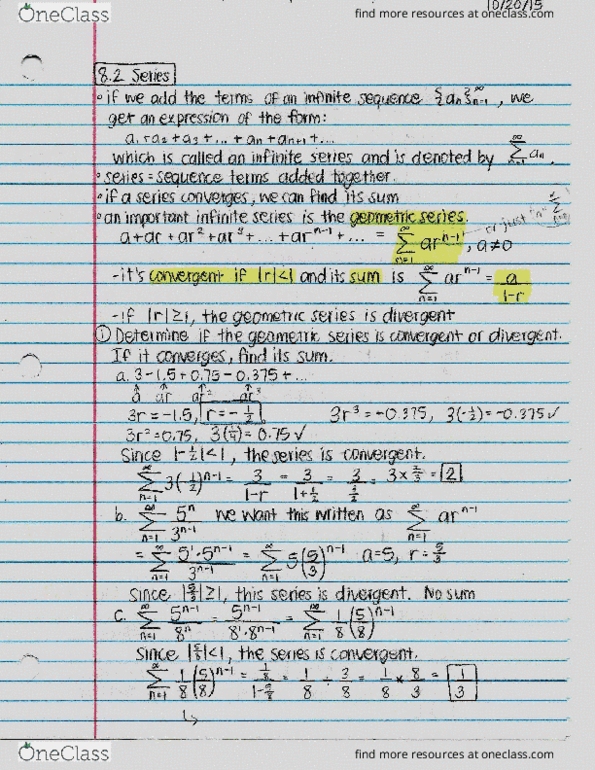 OneClass find more resources at oneclass.com
10/20/15
8.2 Series
• if we add the terms of an infinite sequence {aₙ}ₙ₌₁^∞, we
get an expression of the form:
a₁+a₂+a₃+...+aₙ+aₙ₊₁+...
which is called an infinite series and is denoted by ∑ₙ₌₁^∞ aₙ.
• series = sequence terms added together.
• if a series converges, we can find its sum
• an important infinite series is the geometric series.
or just
a+ar+ar²+ar³+...+arⁿ⁻¹+... = ∑ₙ₌₁^∞ arⁿ⁻¹, a≠0
-it's convergent if |r|<1 and its sum is ∑ₙ₌₁^∞ arⁿ⁻¹ = a/(1-r)
-if |r|≥1, the geometric series is divergent
① Determine if the geometric series is convergent or divergent.
If it converges, find its sum.
a. 3-1.5+0.75-0.375+...
a ar ar² ar³
3r=-1.5, r=-1/2 3r³=-0.375, 3(-1/8)=-0.375✓
3r²=0.75, 3(1/4)=0.75✓
Since |-1/2|<1, the series is convergent.
∑ₙ₌₁^∞ 3(-1/2)ⁿ⁻¹ = 3/(1-r) = 3/(1+1/2) = 3/(3/2) = 3×2/3 = 2
b. ∑ₙ₌₁^∞ 5ⁿ/3ⁿ⁻¹ we want this written as ∑ₙ₌₁^∞ arⁿ⁻¹
= ∑ₙ₌₁^∞ 5¹·5ⁿ⁻¹/3ⁿ⁻¹ = ∑ₙ₌₁^∞ 5(5/3)ⁿ⁻¹ a=5, r=5/3
Since |5/3|≥1, this series is divergent. No sum
c. ∑ₙ₌₁^∞ 5ⁿ⁻¹/8ⁿ = 5ⁿ⁻¹/(8¹·8ⁿ⁻¹) = ∑ₙ₌₁^∞ 1/8(5/8)ⁿ⁻¹
Since |5/8|<1, the series is convergent.
∑ₙ₌₁^∞ 1/8(5/8)ⁿ⁻¹ = (1/8)/(1-5/8) = 1/8 ÷ 3/8 = 1/8 × 8/3 = 1/3
↳
OneClass find more resources at oneclass.com